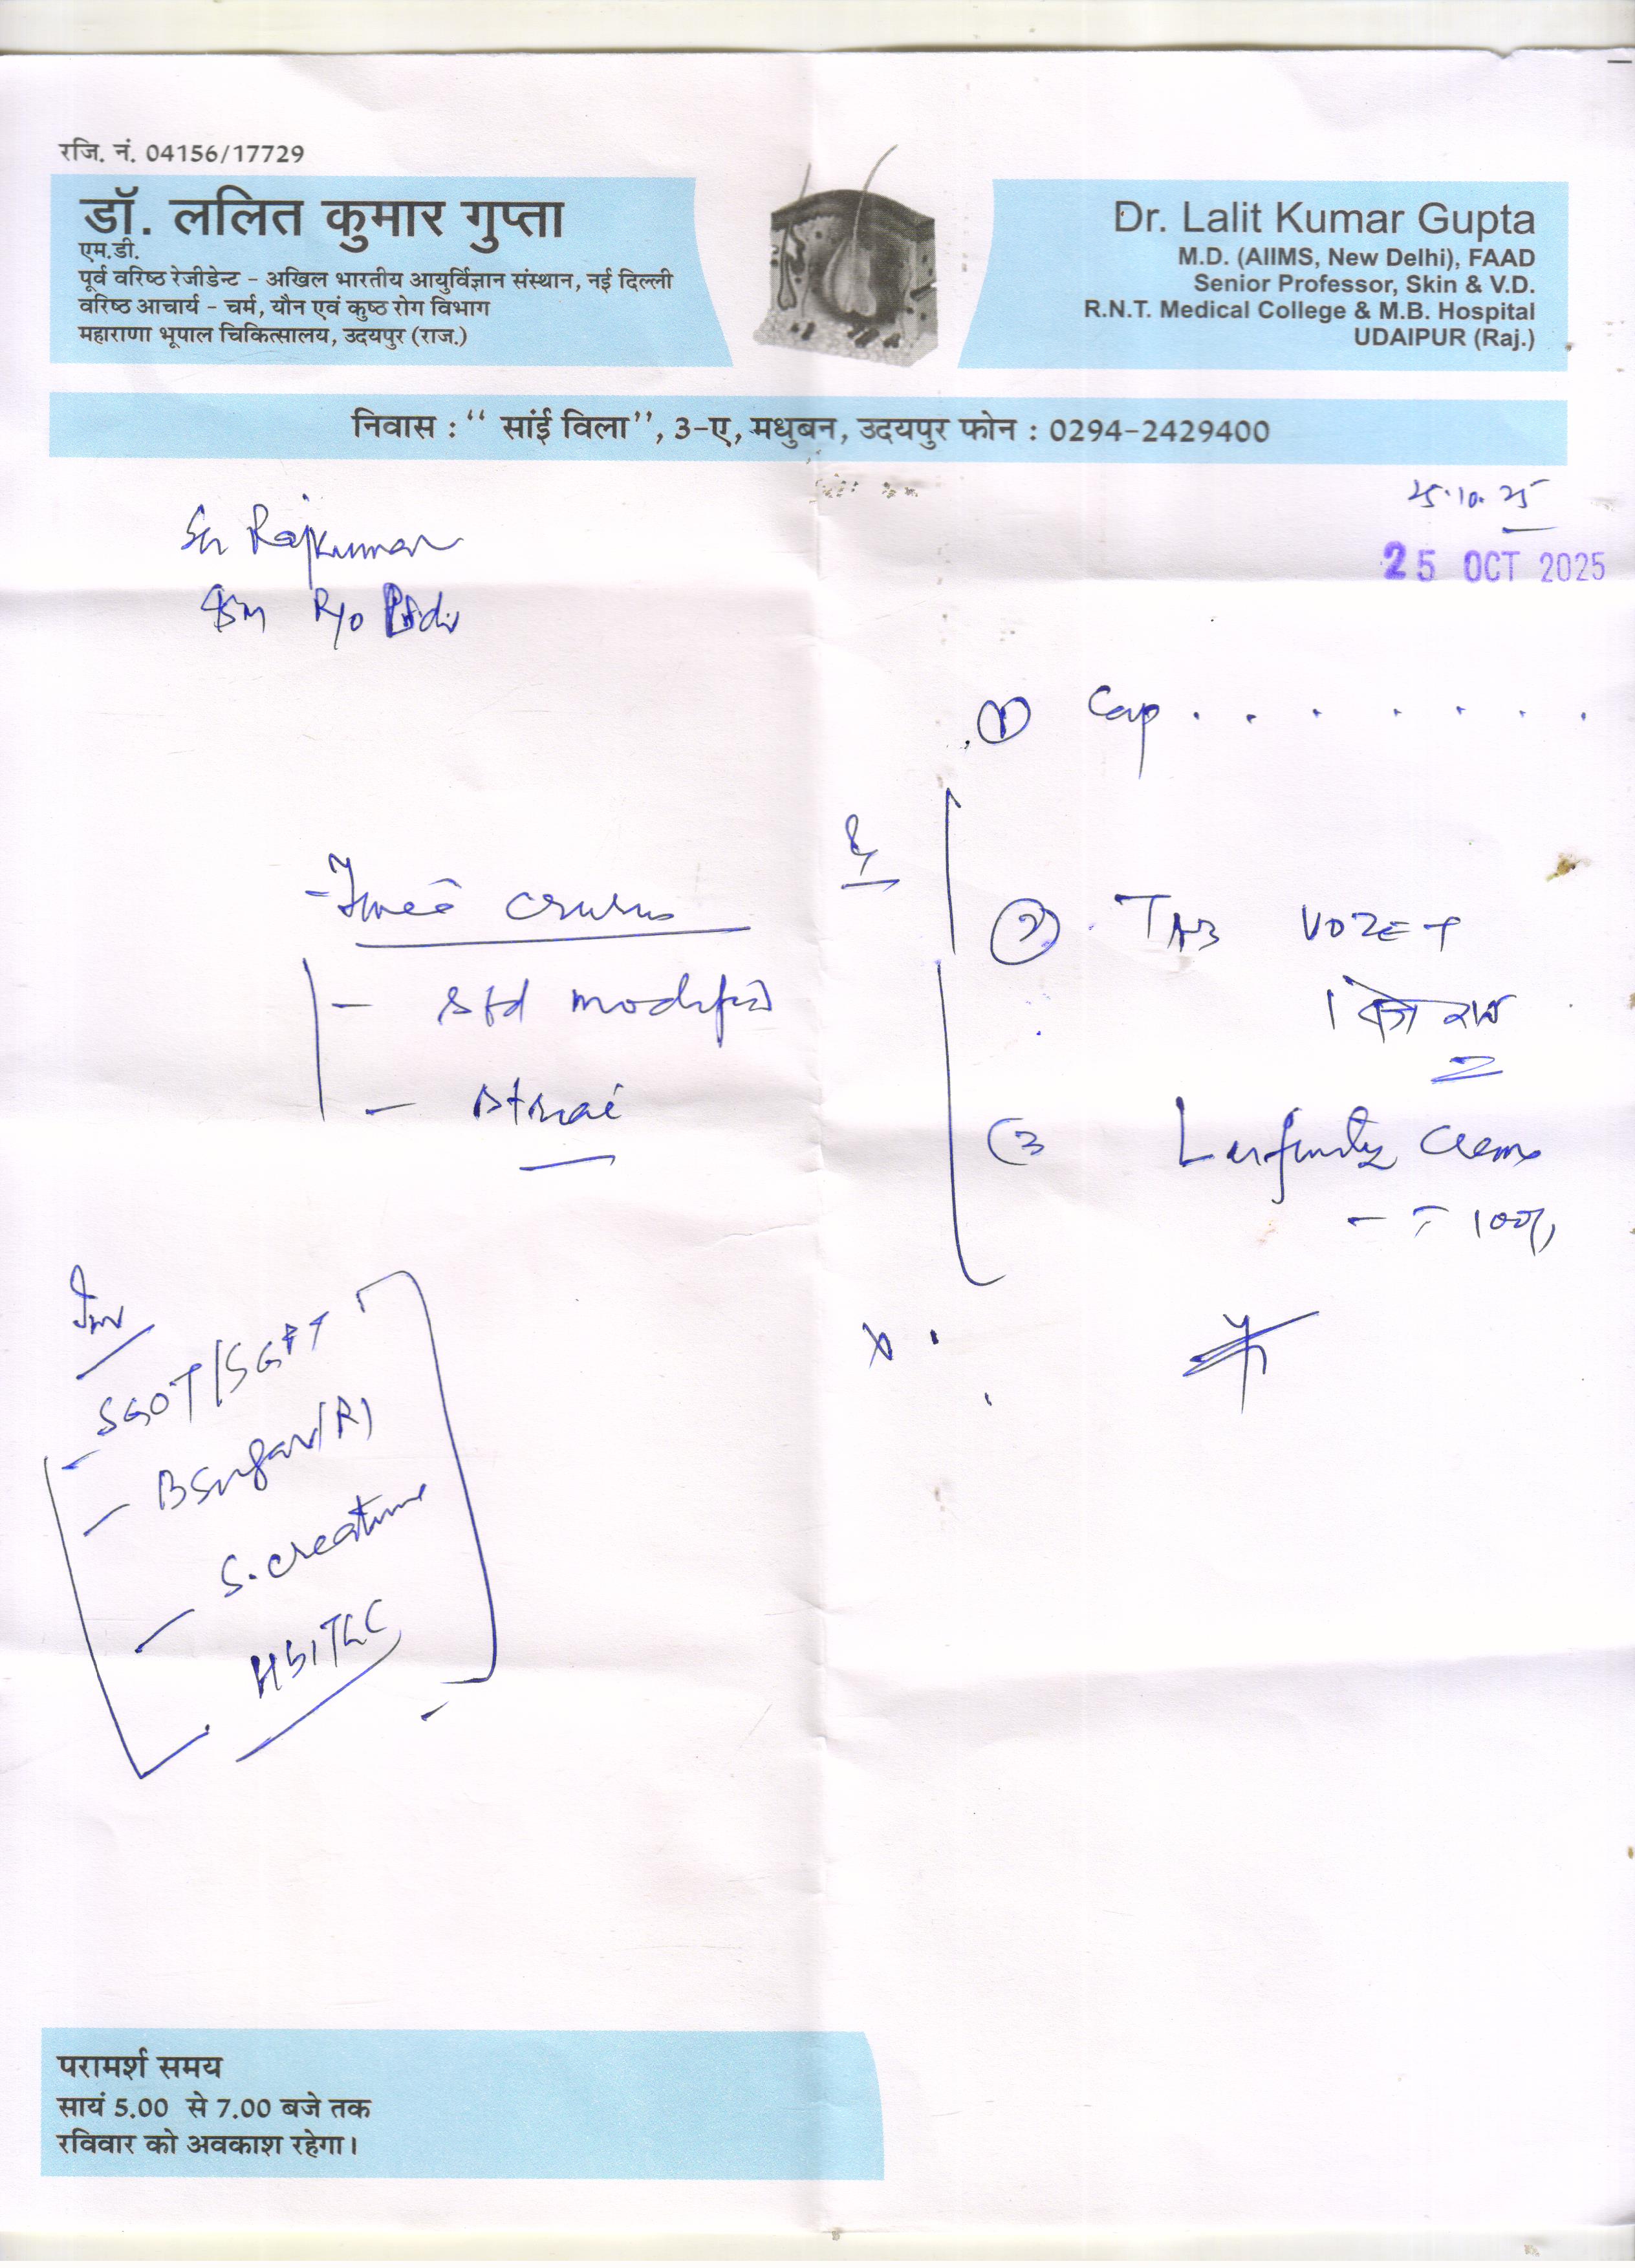 रजि. नं. 04156/17729
डॉ. ललित कुमार गुप्ता
एम.डी.
पूर्व वरिष्ठ रेजीडेन्ट - अखिल भारतीय आयुर्विज्ञान संस्थान, नई दिल्ली
वरिष्ठ आचार्य - चर्म, यौन एवं कुष्ठ रोग विभाग
महाराणा भूपाल चिकित्सालय, उदयपुर (राज.)
Dr. Lalit Kumar Gupta
M.D. (AIIMS, New Delhi), FAAD
Senior Professor, Skin & V.D.
R.N.T. Medical College & M.B. Hospital
UDAIPUR (Raj.)
निवास : “ सांई विला”, 3-ए, मधुबन, उदयपुर फोन : 0294-2429400
25.10.25
25 OCT 2025
Rajkumar
R/o
① Cap . . . . . . .
cruris
- Std modified
- Striae
② TAB VOZET
1
(3 Cream
Inv
- SGOT/SGPT
- B Sugar (R)
- S. creatinine
Hb/TLC
परामर्श समय
सायं 5.00 से 7.00 बजे तक
रविवार को अवकाश रहेगा।